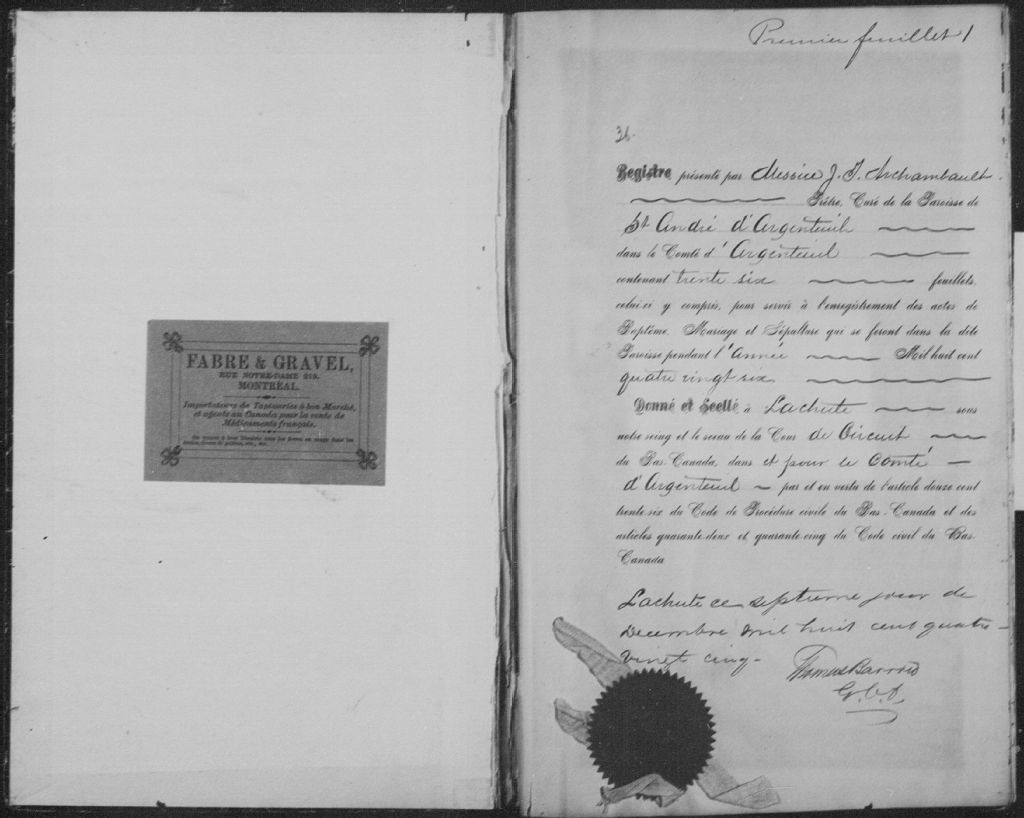 FABRE & GRAVEL,
RUE NOTRE-DAME 219.
MONTRÉAL.
Importateurs de Tapisseries à bon Marché,
et agents au Canada pour la vente de
Médicaments français.
Premier feuillet 1
36.
Registre présenté par Messire J. T. Archambault
Prêtre, Curé de la Paroisse de
St André d'Argenteuil
dans le Comté d'Argenteuil
contenant trente six feuillets,
celui-ci y compris, pour servir à l'enregistrement des actes de
Baptême, Mariage et Sépulture qui se feront dans la dite
Paroisse pendant l'Année Mil huit cent
quatre vingt six
Donné et Scellé à Lachute sous
notre seing et le sceau de la Cour de Circuit
du Bas-Canada, dans et pour le Comté
d'Argenteuil par et en vertu de l'article douze cent
trente-six du Code de Procédure civile du Bas-Canada et des
articles quarante-deux et quarante-cinq du Code civil du Bas-
Canada
Lachute ce septieme jour de
Decembre mil huit cent quatre-
vingt cinq-
Thomas Barron